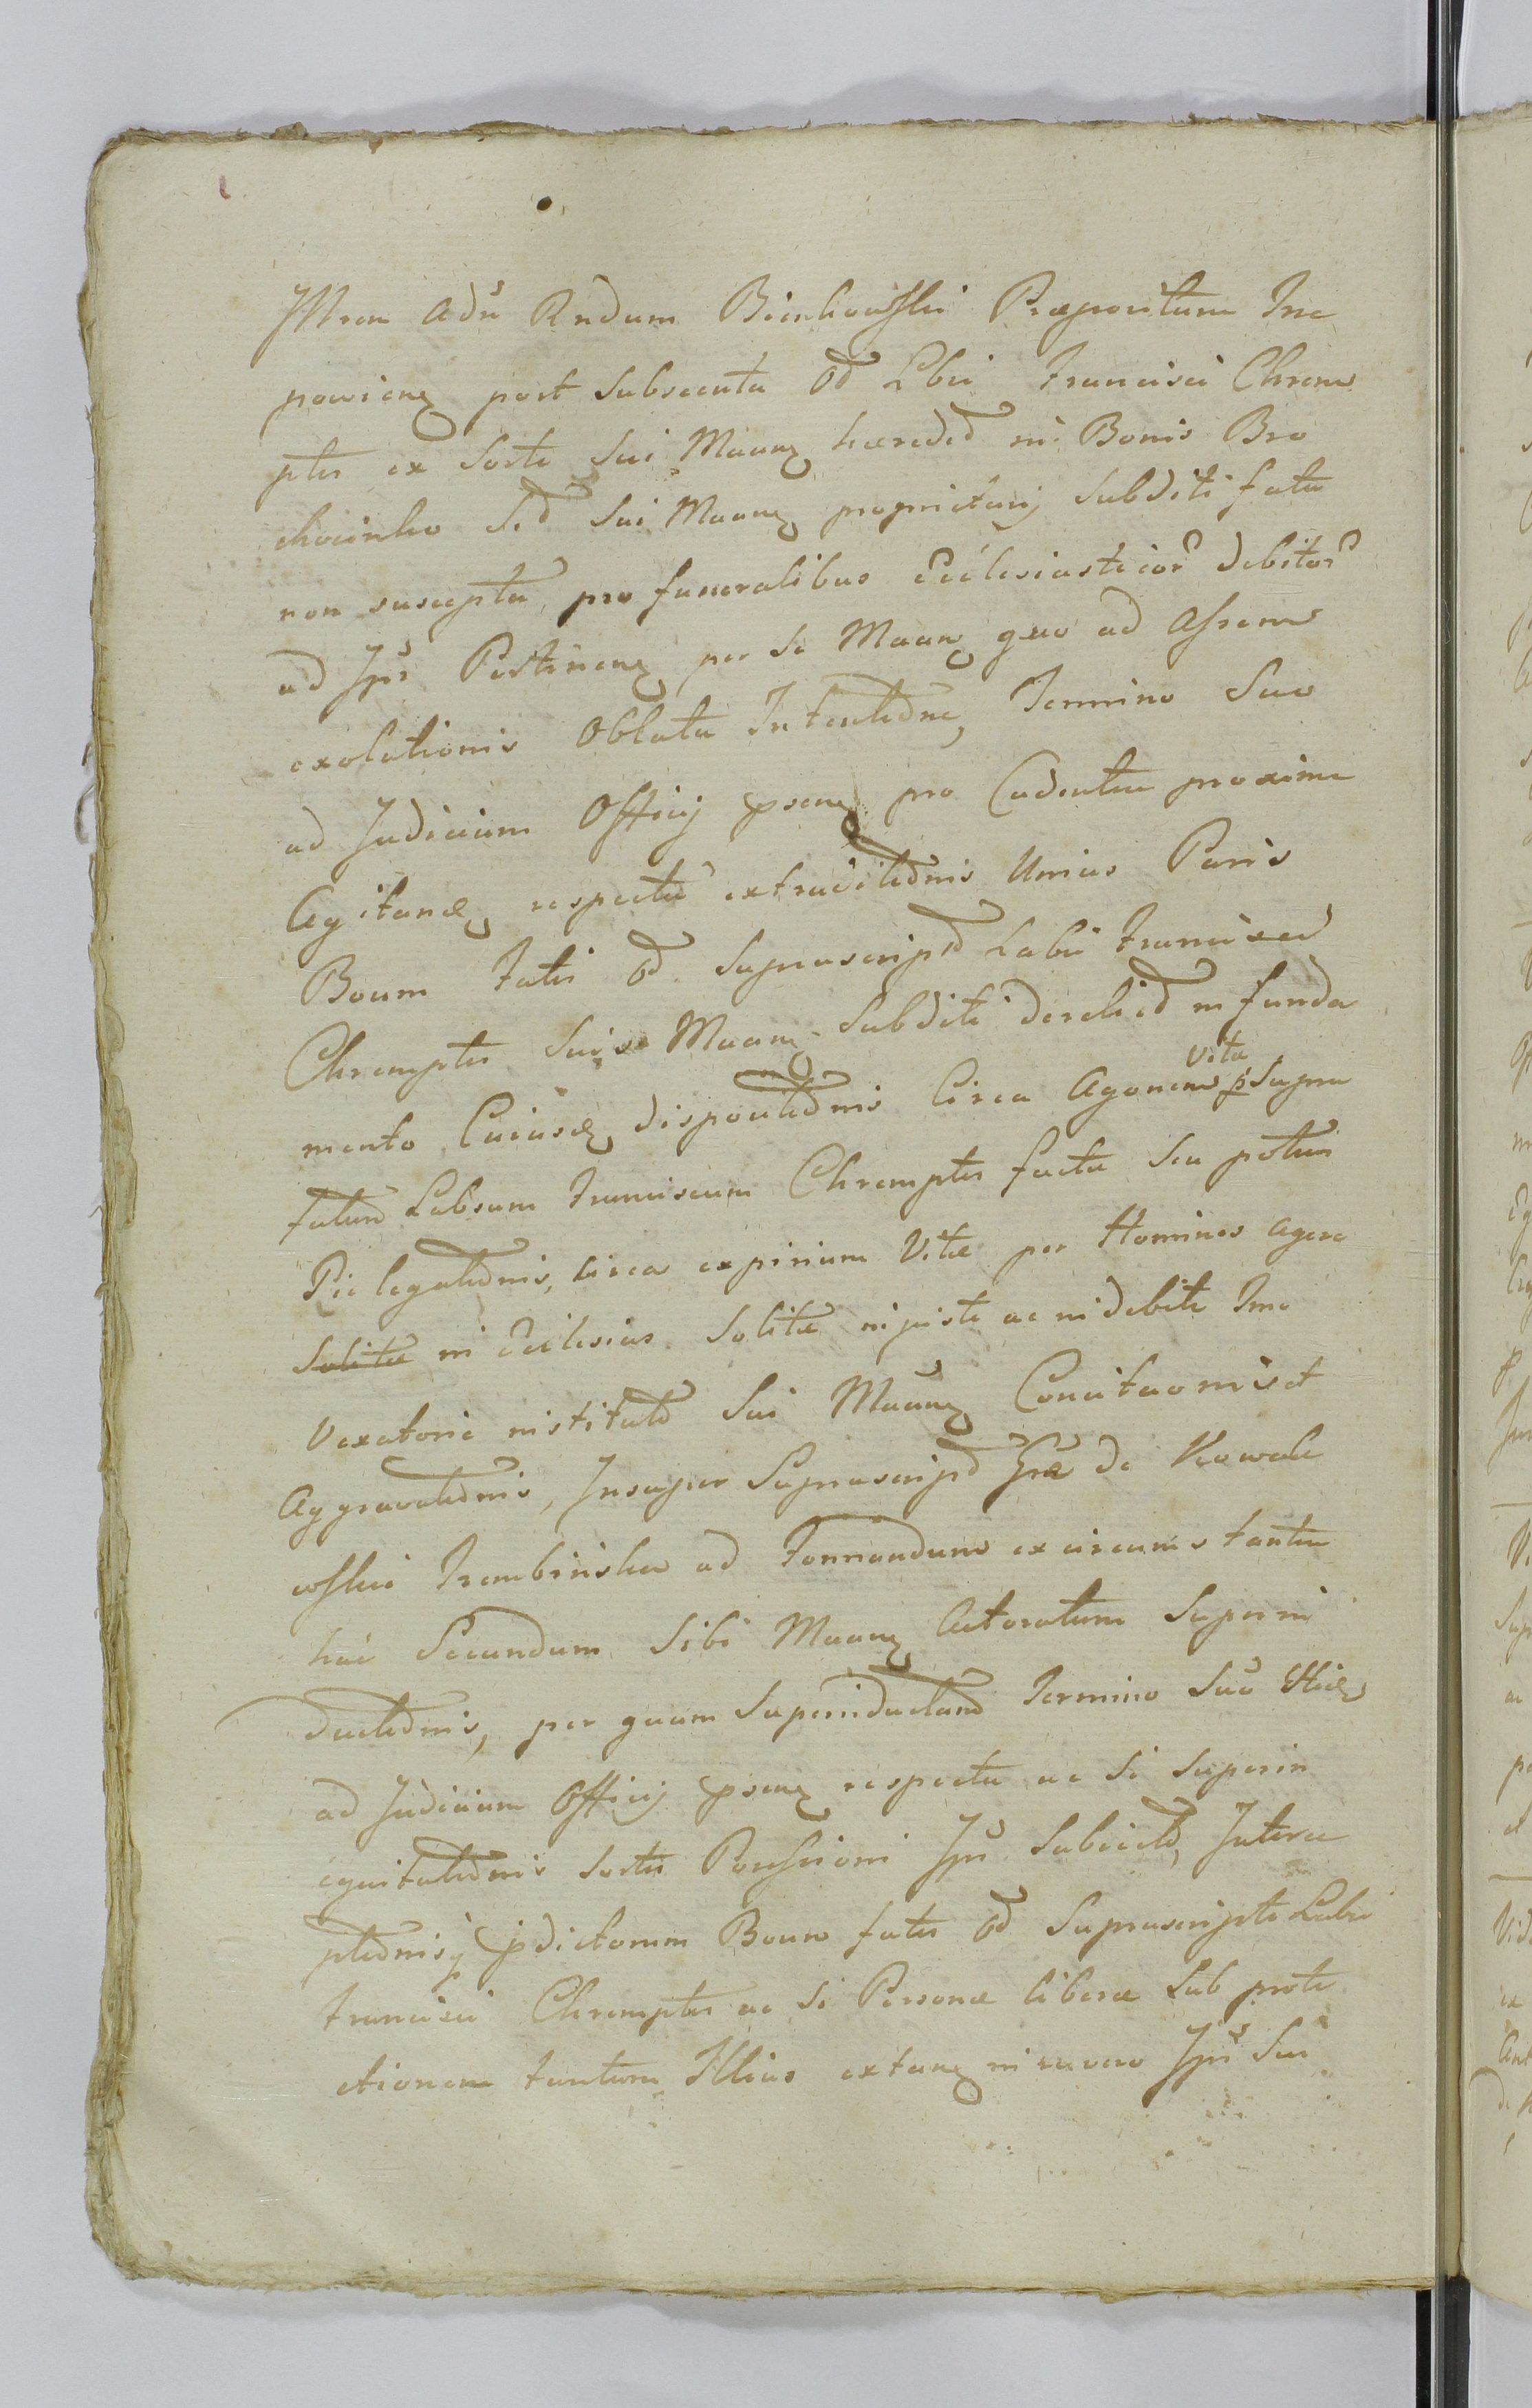 Mron Adm Rndum Bienkowski Præpositum Tre
powienq post Subsecuta Od Lbu Francisci Chrom
ptis ex Sorte Sui Maanq hæreded in Bonis Bro
chocinko Sed Sui Maanq proprietarij Subditi fata
non suscepta, pro funeralibus Ecclesiasticor debitor
ad Jpm Pertinenq per Se Maanq quo ad Assem
exolutionis Oblata Intentedne, Termino Suo
ad Judicium Officij psenq pro Cadentia proxima
Agitandq respectu extraditednis Unius Paris
Boum Fatis Od Suprascripd Labu Francisci
Chromptis Suis Maanq Subditi derelicd in funda
mento Cuiusdq dispositednis Circa Agonem Vitæ p Supra
fatum Labsum Franciscum Chromptis facta Seu potius
Pie legatednis, circa expirium Vitæ per Homines agere
Solitæ in Ecclesias Solitæ injuste ac indebite Imo
Vexatorie institutd Sui Maanq Concitaomis et
Aggravatednis, Insuper Suprascripd de Kowale
wskie Trembinska ad Formandum ex circumstantia
hac Secundum Sibi Maanq Actoratum Superin
ductednis, per quam Superinductand Termino Suo
ad Judicium Officij psenq respectu ac Si Superin
equitatednis Sortis Possessioni Jpm Subiectd, Interce
ptednisq pdictorum Boum fatis Od Suprascripti Labu
Francisci Chromptis ac Si Personæ liberæ Sub prote
ctionem tantum Illius extanq in Jpm Sui